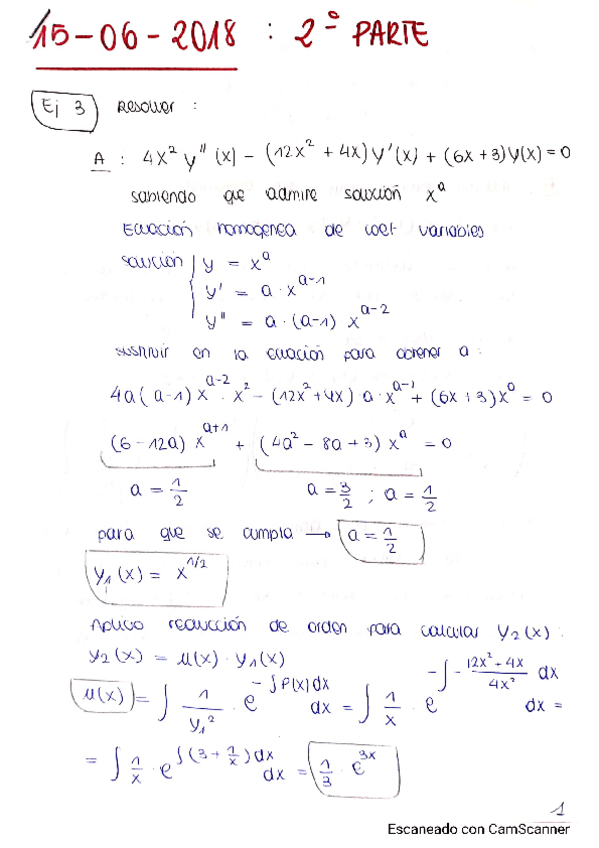 15-06-2018 : 2º PARTE
Ej 3 Resolver :
A : 4x² y''(x) - (12x² + 4x) y'(x) + (6x + 3) y(x) = 0
sabiendo que admite solución x^a
Ecuación homogenea de coef variables
solución { y = x^a
y' = a · x^{a-1}
y'' = a · (a-1) x^{a-2}
sustituir en la ecuación para obtener a :
4a(a-1) x^{a-2} · x² - (12x² + 4x) · a · x^{a-1} + (6x + 3) x^a = 0
(6 - 12a) x^{a+1} + (4a² - 8a + 3) x^a = 0
a = 1/2 a = 3/2 ; a = 1/2
para que se cumpla → a = 1/2
y₁(x) = x^{1/2}
Aplico reducción de orden para calcular y₂(x) :
y₂(x) = u(x) · y₁(x)
u(x) = ∫ 1/y₁² · e^{-∫P(x)dx} dx = ∫ 1/x · e^{-∫ - (12x² + 4x)/4x² dx} dx =
= ∫ 1/x · e^{∫(3 + 1/x)dx} dx = 1/3 · e^{3x}
1
Escaneado con CamScanner